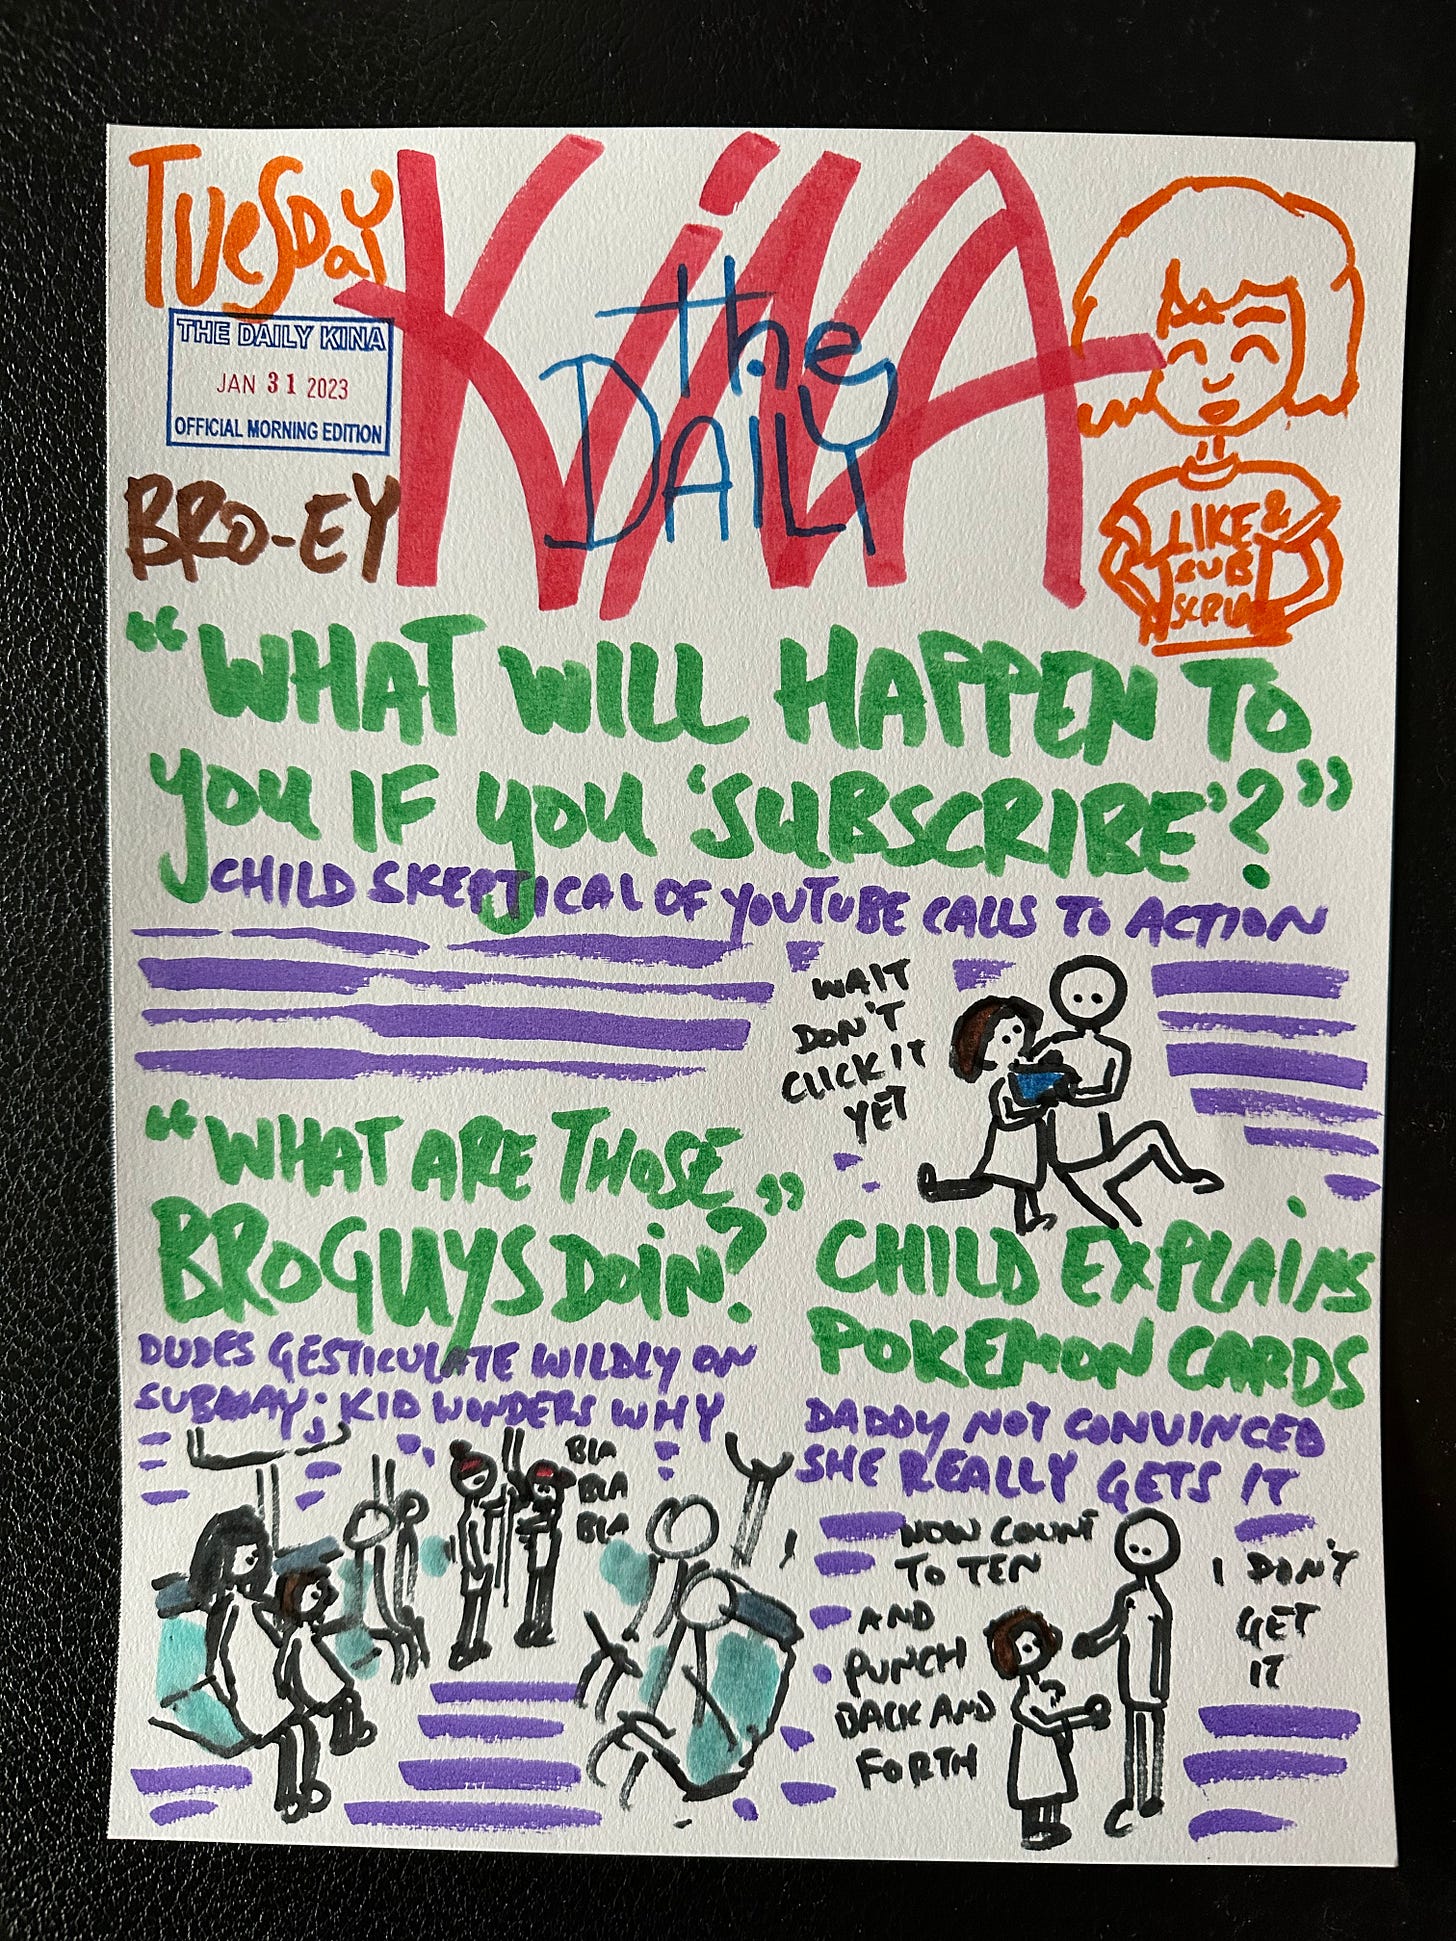 TUESDAY
THE DAILY KINA
JAN 31 2023
OFFICIAL MORNING EDITION
BRO-EY
The
DAILY
KiNA
LIKE &
SUB
SCRIB
"WHAT WILL HAPPEN TO
you IF you 'SUBSCRIBE'?"
CHILD SKEPTICAL OF YOUTUBE CALLS TO ACTION
WAIT
DON'T
CLICK IT
YET
"WHAT ARE THOSE
BRO GUYS DOIN?"
DUDES GESTICULATE WILDLY ON
SUBWAY; KID WONDERS WHY
BLA
BLA
BLA
CHILD EXPLAINS
POKEMON CARDS
DADDY NOT CONVINCED
SHE REALLY GETS IT
NOW COUNT
TO TEN
AND
PUNCH
BACK AND
FORTH
I DON'T
GET
IT